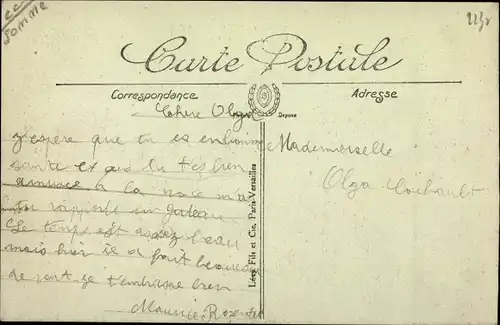 Somme
Carte Postale
Correspondance
Depose
Adresse
Chere Olga
J'espere que tu es en bonne
sante et que tu t'es bien
amusee à la noce m'a
tu rapporte un gateau
Le temps est assez beau
mais hier il a fait beaucoup
de vent je t'embrasse bien
Maurice
Mademoiselle
Olga
Lévy Fils et Cie, Paris-Versailles